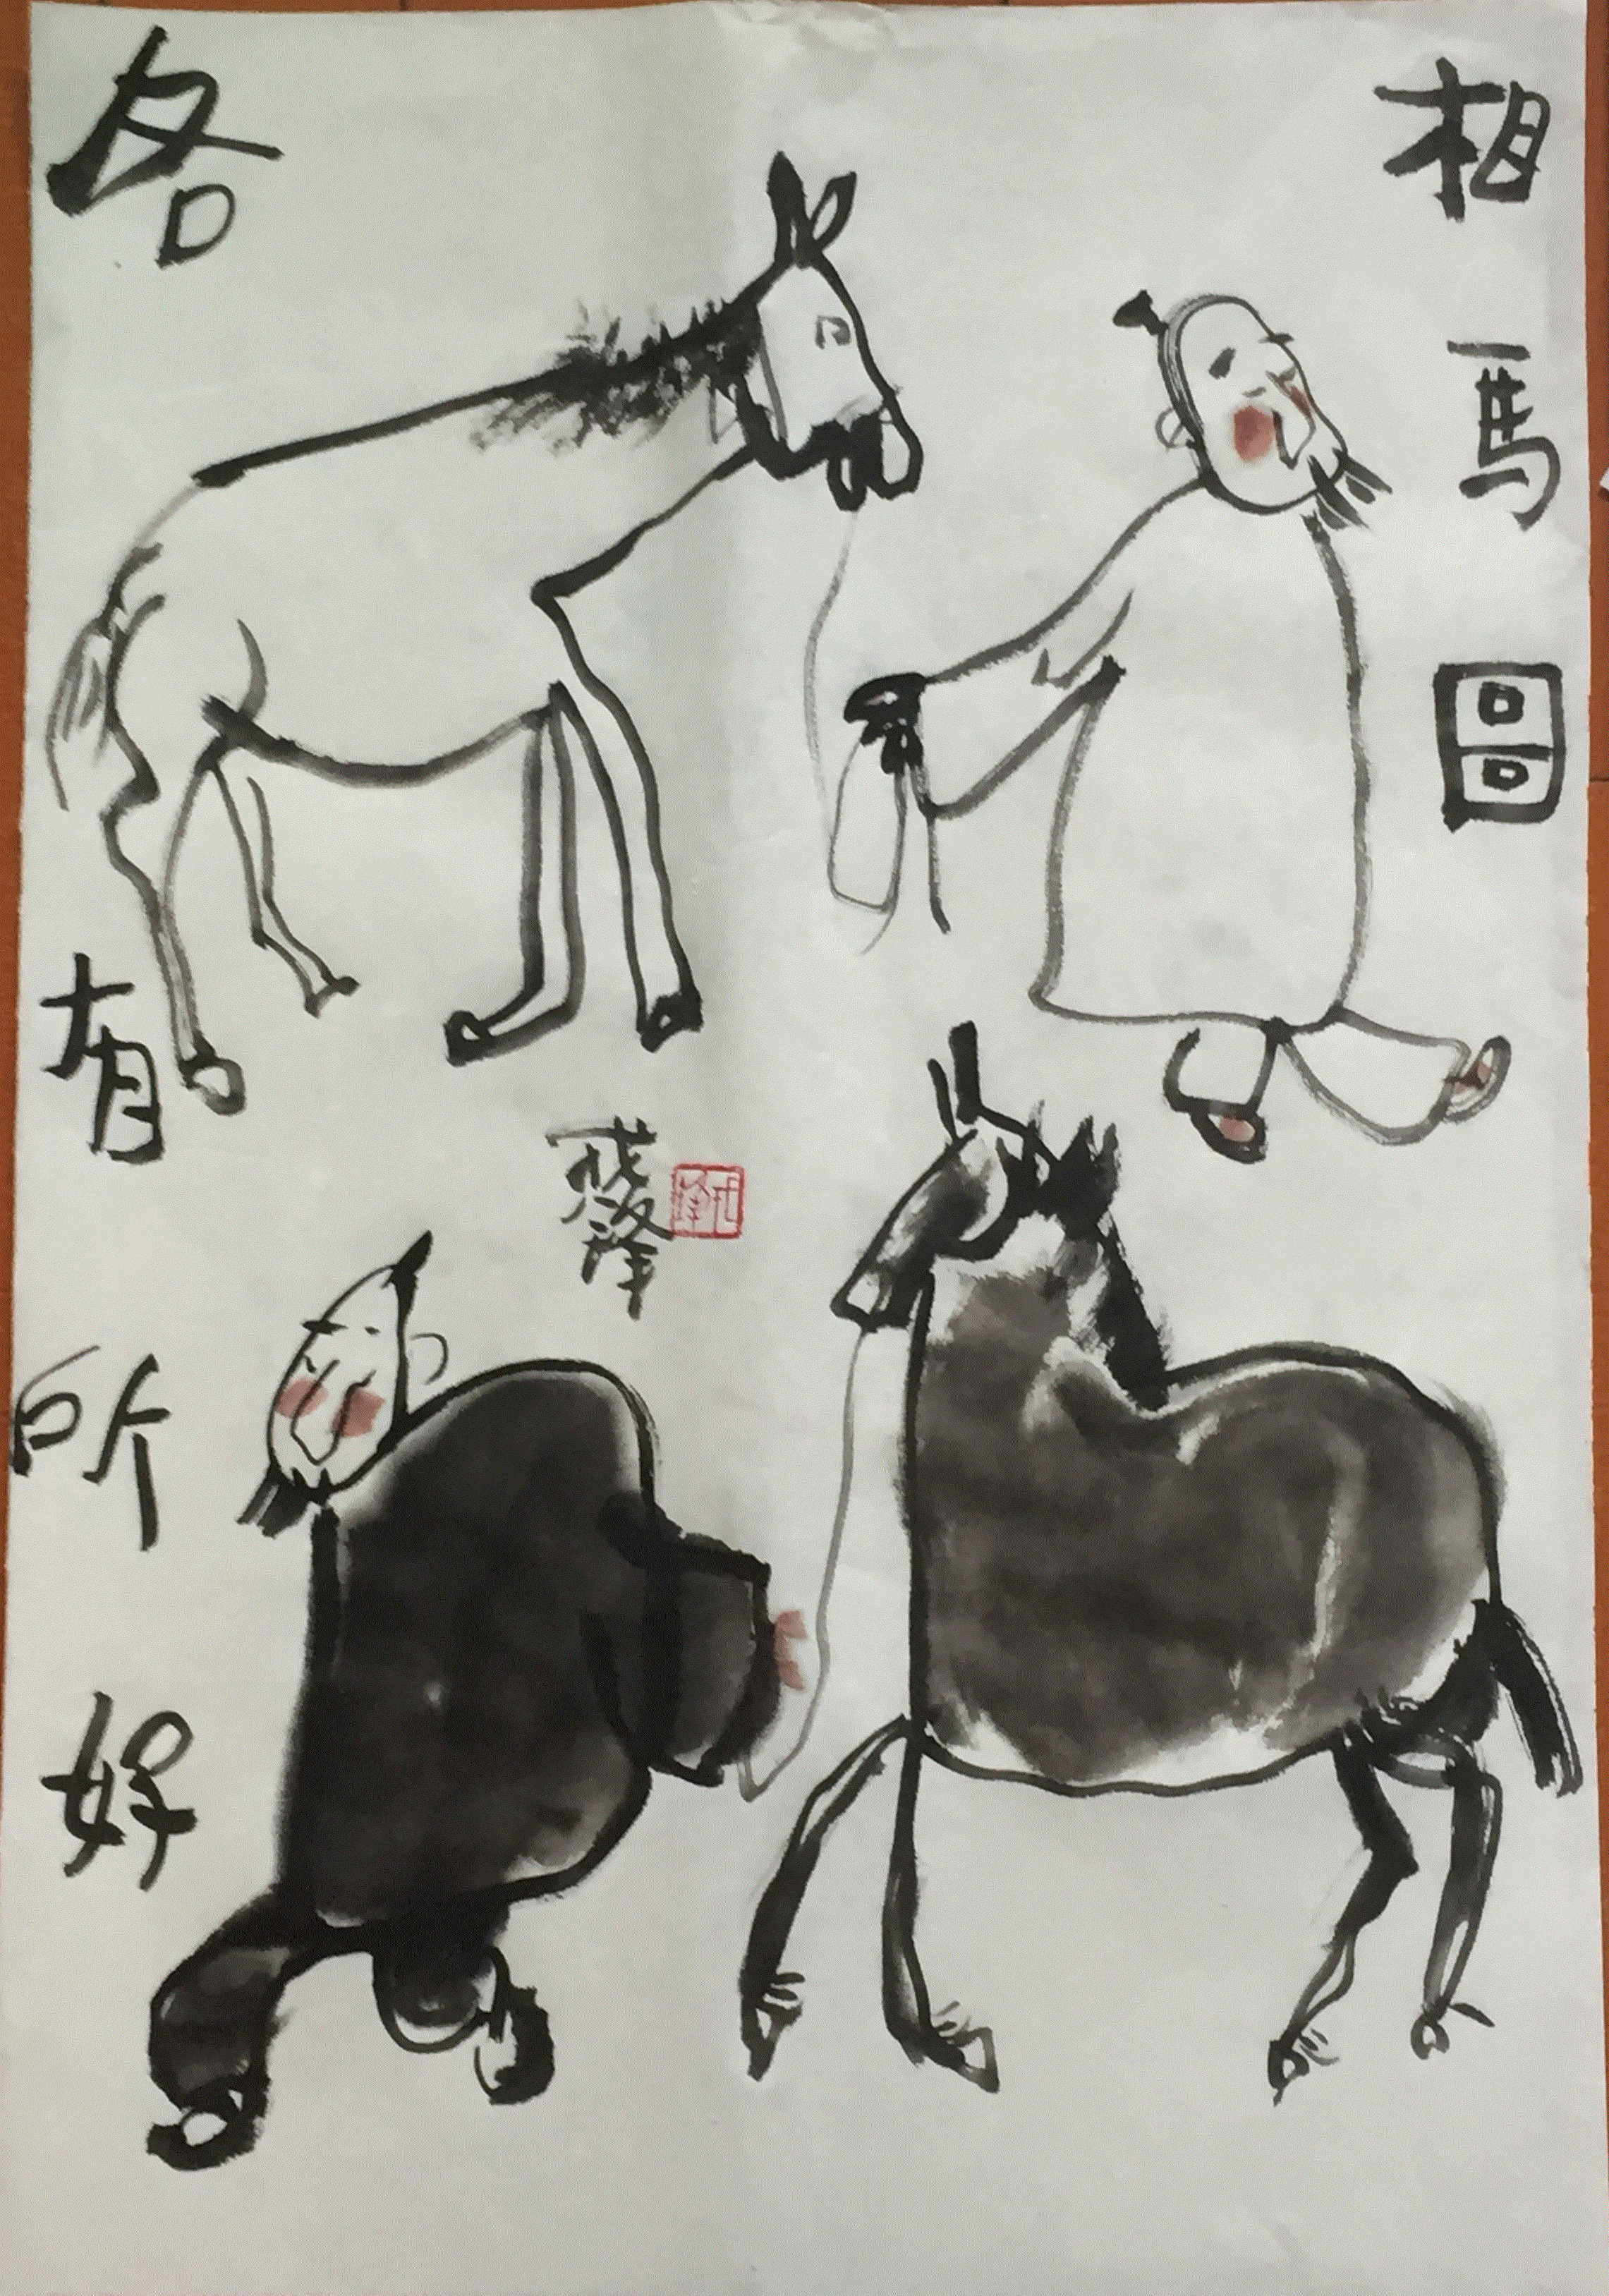 相馬圖
各有所好